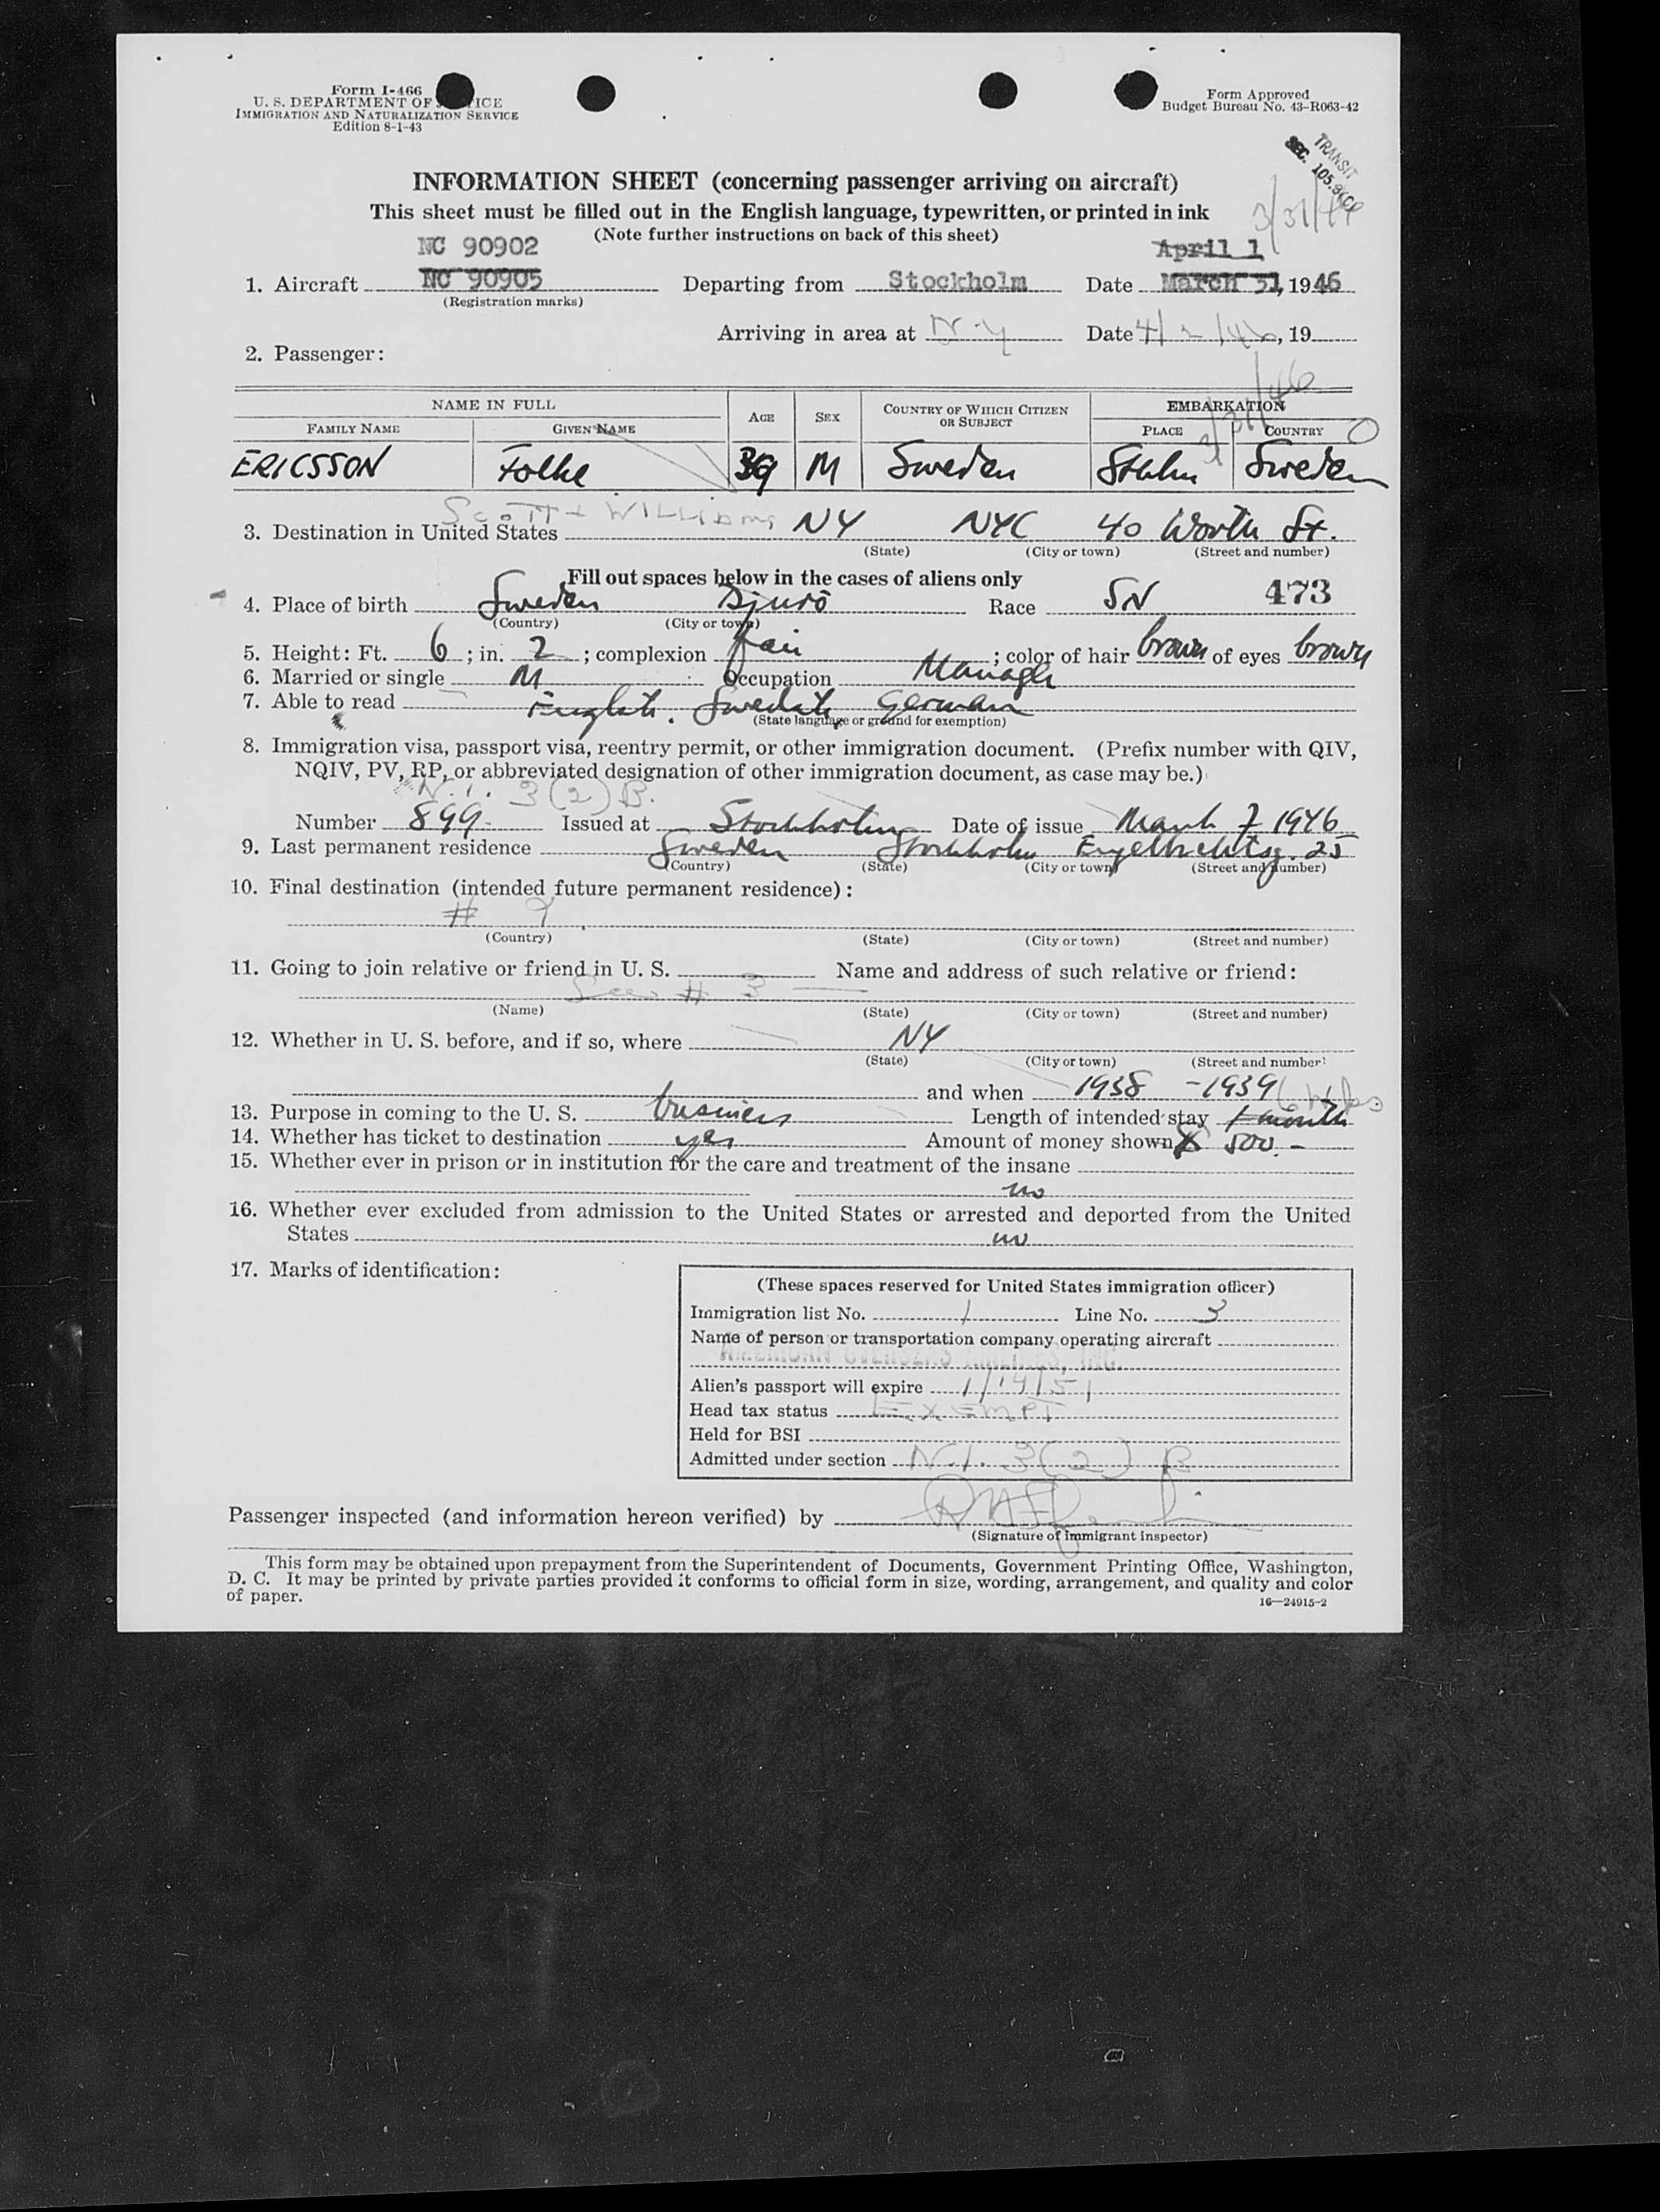 Form I-466
U. S. DEPARTMENT OF ICE
IMMIGRATION AND NATURALIZATION SERVICE
Edition 8-1-43
Form Approved
Budget Bureau No. 43-R063-42
TRANSIT
SEC. 105.3
INFORMATION SHEET (concerning passenger arriving on aircraft)
This sheet must be filled out in the English language, typewritten, or printed in ink
(Note further instructions on back of this sheet)
3/31/46
NC 90902
April 1
1. Aircraft NC 90905 Departing from Stockholm Date March 31, 1946
(Registration marks)
Arriving in area at N.Y Date 4/2/46, 19
2. Passenger:
3/31/46
NAME IN FULL AGE SEX COUNTRY OF WHICH CITIZEN OR SUBJECT EMBARKATION
FAMILY NAME GIVEN NAME PLACE COUNTRY
ERICSSON Folke 39 M Sweden Sthlm Sweden
SCOTT + WILLIAMS
3. Destination in United States NY NYC 40 Worth St.
(State) (City or town) (Street and number)
Fill out spaces below in the cases of aliens only
4. Place of birth Sweden Djurö Race SN 473
(Country) (City or town)
5. Height: Ft. 6; in. 2; complexion fair; color of hair brown of eyes brown
6. Married or single M Occupation Manager
7. Able to read English. Swedish German
(State language or ground for exemption)
8. Immigration visa, passport visa, reentry permit, or other immigration document. (Prefix number with QIV,
NQIV, PV, RP, or abbreviated designation of other immigration document, as case may be.)
N.I. 3(2)B.
Number 899 Issued at Stockholm Date of issue March 7 1946
9. Last permanent residence Sweden Stockholm Engelbrektsg. 25
(Country) (State) (City or town) (Street and number)
10. Final destination (intended future permanent residence):
# 9
(Country) (State) (City or town) (Street and number)
11. Going to join relative or friend in U. S. Name and address of such relative or friend:
See # 3
(Name) (State) (City or town) (Street and number)
12. Whether in U. S. before, and if so, where NY
(State) (City or town) (Street and number)
and when 1938 - 1939
13. Purpose in coming to the U. S. business Length of intended stay 1 month
14. Whether has ticket to destination yes Amount of money shown $ 500.-
15. Whether ever in prison or in institution for the care and treatment of the insane
no
16. Whether ever excluded from admission to the United States or arrested and deported from the United
States no
17. Marks of identification:
(These spaces reserved for United States immigration officer)
Immigration list No. 1 Line No. 3
Name of person or transportation company operating aircraft
AMERICAN OVERSEAS AIRLINES, INC.
Alien's passport will expire 1/14/51
Head tax status EXEMPT
Held for BSI
Admitted under section N.I. 3(2) B
Passenger inspected (and information hereon verified) by
(Signature of immigrant inspector)
This form may be obtained upon prepayment from the Superintendent of Documents, Government Printing Office, Washington,
D. C. It may be printed by private parties provided it conforms to official form in size, wording, arrangement, and quality and color
of paper.
16—24915-2